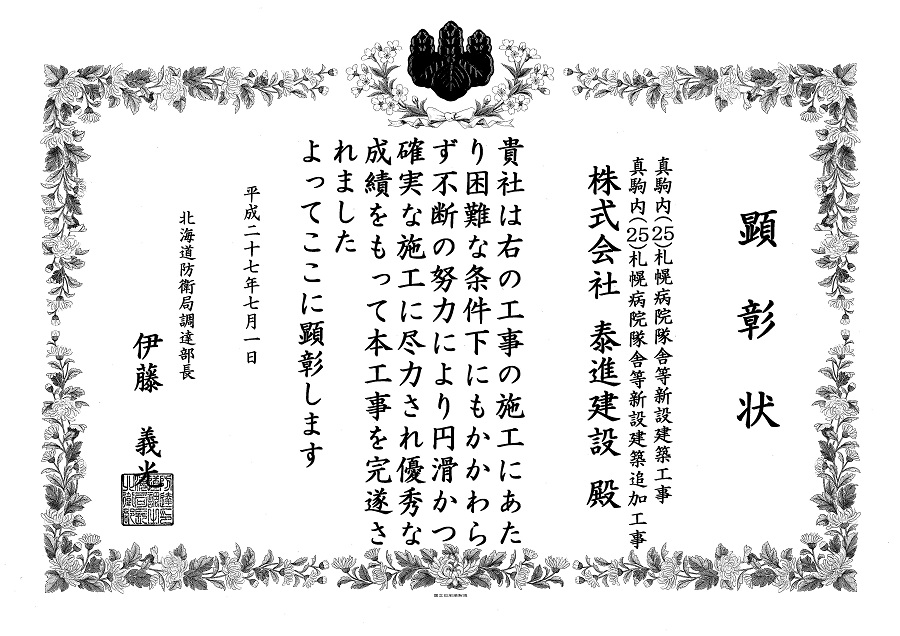 顕彰状
真駒内(25)札幌病院隊舎等新設建築工事
真駒内(25)札幌病院隊舎等新設建築追加工事
株式会社 泰進建設 殿
貴社は右の工事の施工にあた
り困難な条件下にもかかわら
ず不断の努力により円滑かつ
確実な施工に尽力され優秀な
成績をもって本工事を完遂さ
れました
よってここに顕彰します
平成二十七年七月一日
北海道防衛局調達部長
伊藤 義光